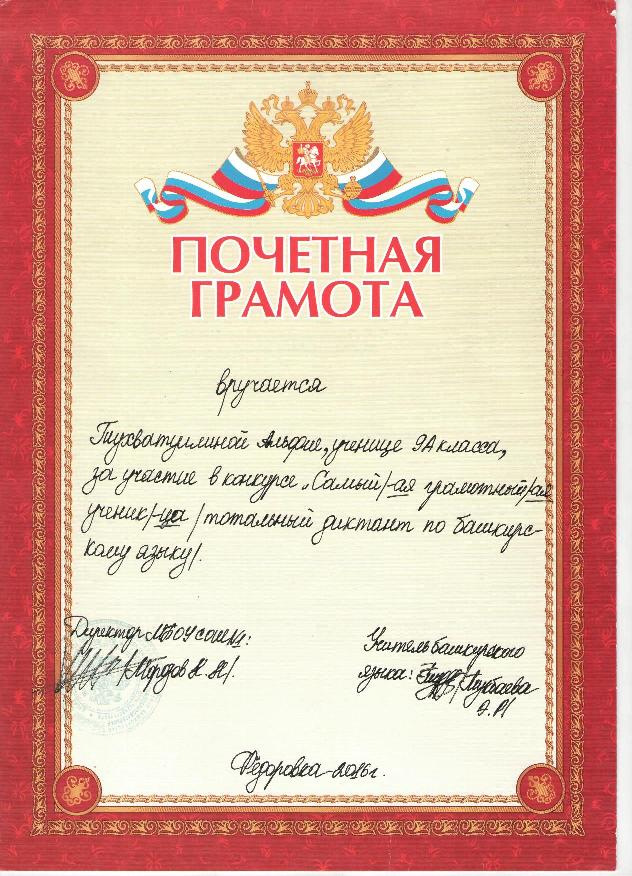 ПОЧЕТНАЯ
ГРАМОТА
вручается
Тухватуллиной Альфие, ученице 9А класса,
за участие в конкурсе „Самый/-ая грамотный/ая
ученик/-ца /тотальный диктант по башкирс-
кому языку/.
Директор МБОУ СОШ №1:
Учитель башкирского
языка:
Э.Р/
Фёдоровка-2016г.